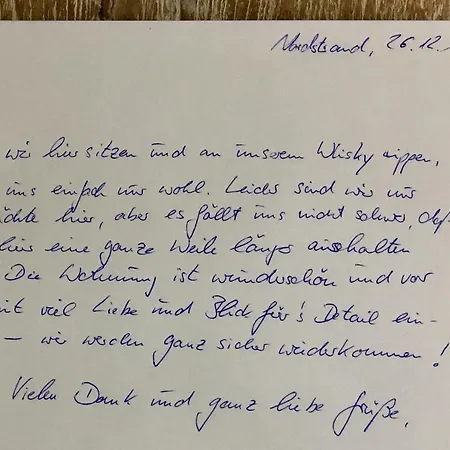 Nordstrand, 26.12.
wir hier sitzen und an unserem Whisky nippen,
uns einfach nur wohl. Leider sind wir nur
hier, aber es fällt uns nicht schwer, daß
hier eine ganze Weile länger aushalten
Die Wohnung ist wunderschön und vor
mit viel Liebe und Blick für's Detail ein-
– wir werden ganz sicher wiederkommen!
Vielen Dank und ganz liebe Grüße,